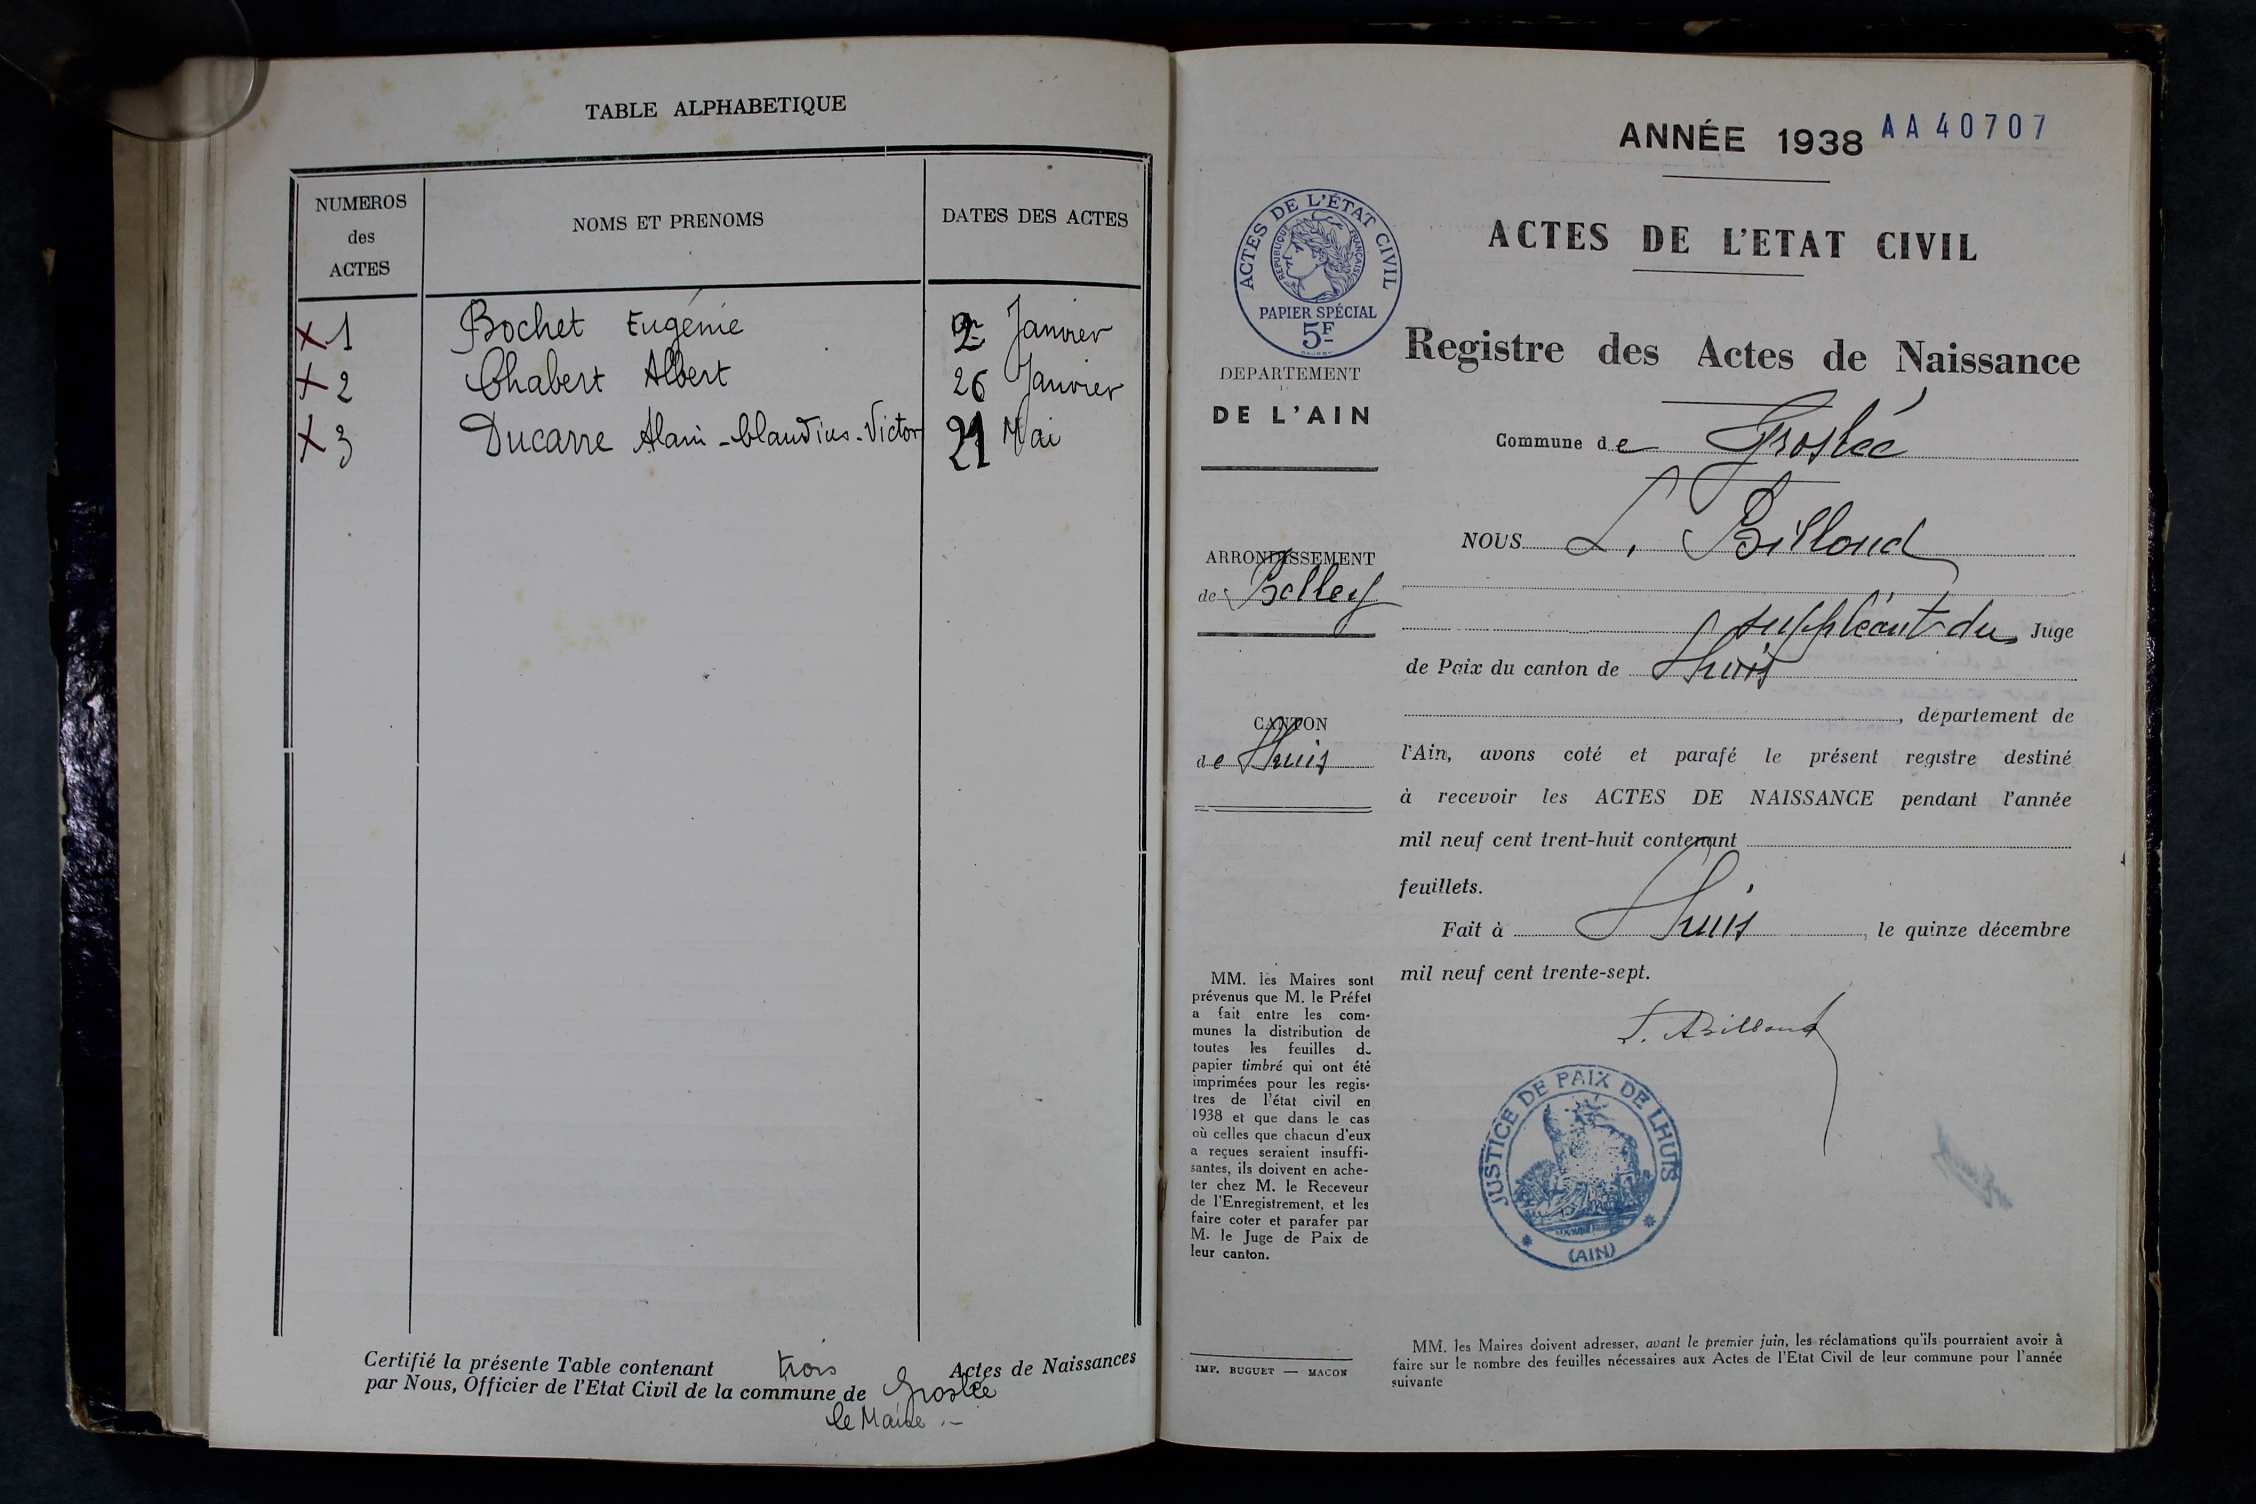 TABLE ALPHABETIQUE
NUMEROS
des
ACTES
NOMS ET PRENOMS
DATES DES ACTES
x 1 Bochet Eugénie 2 Janvier
x 2 Chabert Albert 26 Janvier
x 3 Ducarre Alain-Claudius-Victor 21 Mai
Certifié la présente Table contenant trois Actes de Naissances
par Nous, Officier de l'Etat Civil de la commune de Groslée
le Maire.-
ANNÉE 1938 AA40707
ACTES DE L'ETAT CIVIL
Registre des Actes de Naissance
ACTES DE L'ÉTAT CIVIL
REPUBLIQUE FRANÇAISE
PAPIER SPÉCIAL
5F
DEPARTEMENT
DE L'AIN
ARRONDISSEMENT
de Belley
CANTON
de Lhuis
MM. les Maires sont
prévenus que M. le Préfet
a fait entre les com-
munes la distribution de
toutes les feuilles d
papier timbré qui ont été
imprimées pour les regis-
tres de l'état civil en
1938 et que dans le cas
où celles que chacun d'eux
a reçues seraient insuffi-
santes, ils doivent en ache-
ter chez M. le Receveur
de l'Enregistrement, et les
faire coter et parafer par
M. le Juge de Paix de
leur canton.
IMP. BUGUET — MACON
Commune de Groslée
NOUS L. Billoud
suppléant du Juge
de Paix du canton de Lhuis
, département de
l'Ain, avons coté et parafé le présent registre destiné
à recevoir les ACTES DE NAISSANCE pendant l'année
mil neuf cent trent-huit contenant
feuillets.
Fait à Lhuis, le quinze décembre
mil neuf cent trente-sept.
L. Billoud
JUSTICE DE PAIX DE LHUIS
(AIN)
MM. les Maires doivent adresser, avant le premier juin, les réclamations qu'ils pourraient avoir à
faire sur le nombre des feuilles nécessaires aux Actes de l'Etat Civil de leur commune pour l'année
suivante